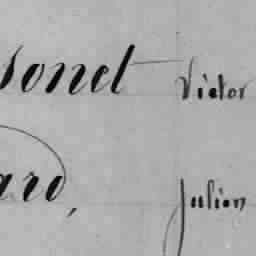 sonet Victor
ard, Julien